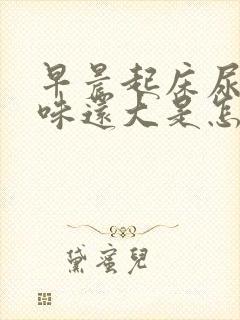 早晨起床尿
味還大是怎
黛蜜兒